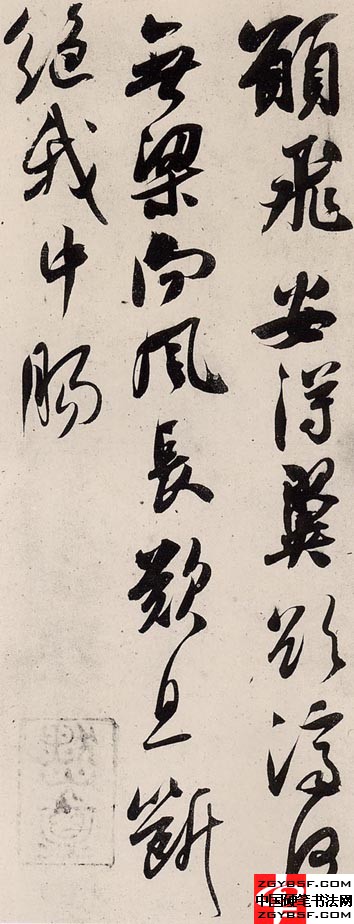 願飛安得翼欲濟河
無梁向風長歎息斷
絕我中腸
ZGYBSF.COM
中国硬笔书法网
ZGYBSF.COM